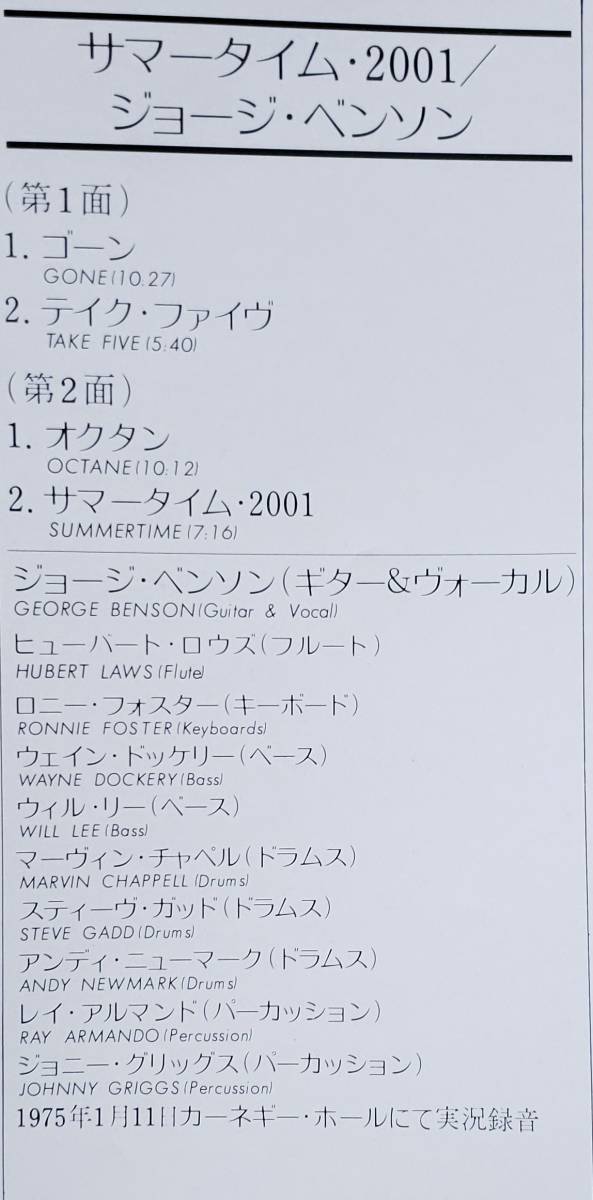 サマータイム・2001/
ジョージ・ベンソン
(第1面)
1. ゴーン
GONE(10:27)
2. テイク・ファイヴ
TAKE FIVE(5:40)
(第2面)
1. オクタン
OCTANE(10:12)
2. サマータイム・2001
SUMMERTIME(7:16)
ジョージ・ベンソン(ギター&ヴォーカル)
GEORGE BENSON(Guitar & Vocal)
ヒューバート・ロウズ(フルート)
HUBERT LAWS(Flute)
ロニー・フォスター(キーボード)
RONNIE FOSTER(Keyboards)
ウェイン・ドッケリー(ベース)
WAYNE DOCKERY(Bass)
ウィル・リー(ベース)
WILL LEE(Bass)
マーヴィン・チャペル(ドラムス)
MARVIN CHAPPELL(Drums)
スティーヴ・ガッド(ドラムス)
STEVE GADD(Drums)
アンディ・ニューマーク(ドラムス)
ANDY NEWMARK(Drums)
レイ・アルマンド(パーカッション)
RAY ARMANDO(Percussion)
ジョニー・グリッグス(パーカッション)
JOHNNY GRIGGS(Percussion)
1975年1月11日カーネギー・ホールにて実況録音